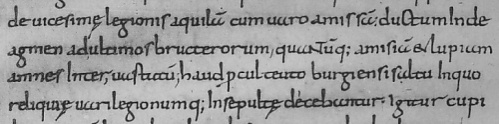 deuicesimę legionis aquilā cum uaro amissā; ductum Inde
agmen adultimos bructerorum, quantūq; amisiā & lupiam
amnes Inter, uastatū; haud pcul teuto burgiensi saltu Inquo
reliquię uari legionumq; Insepultę dicebantur. Igitur cupi